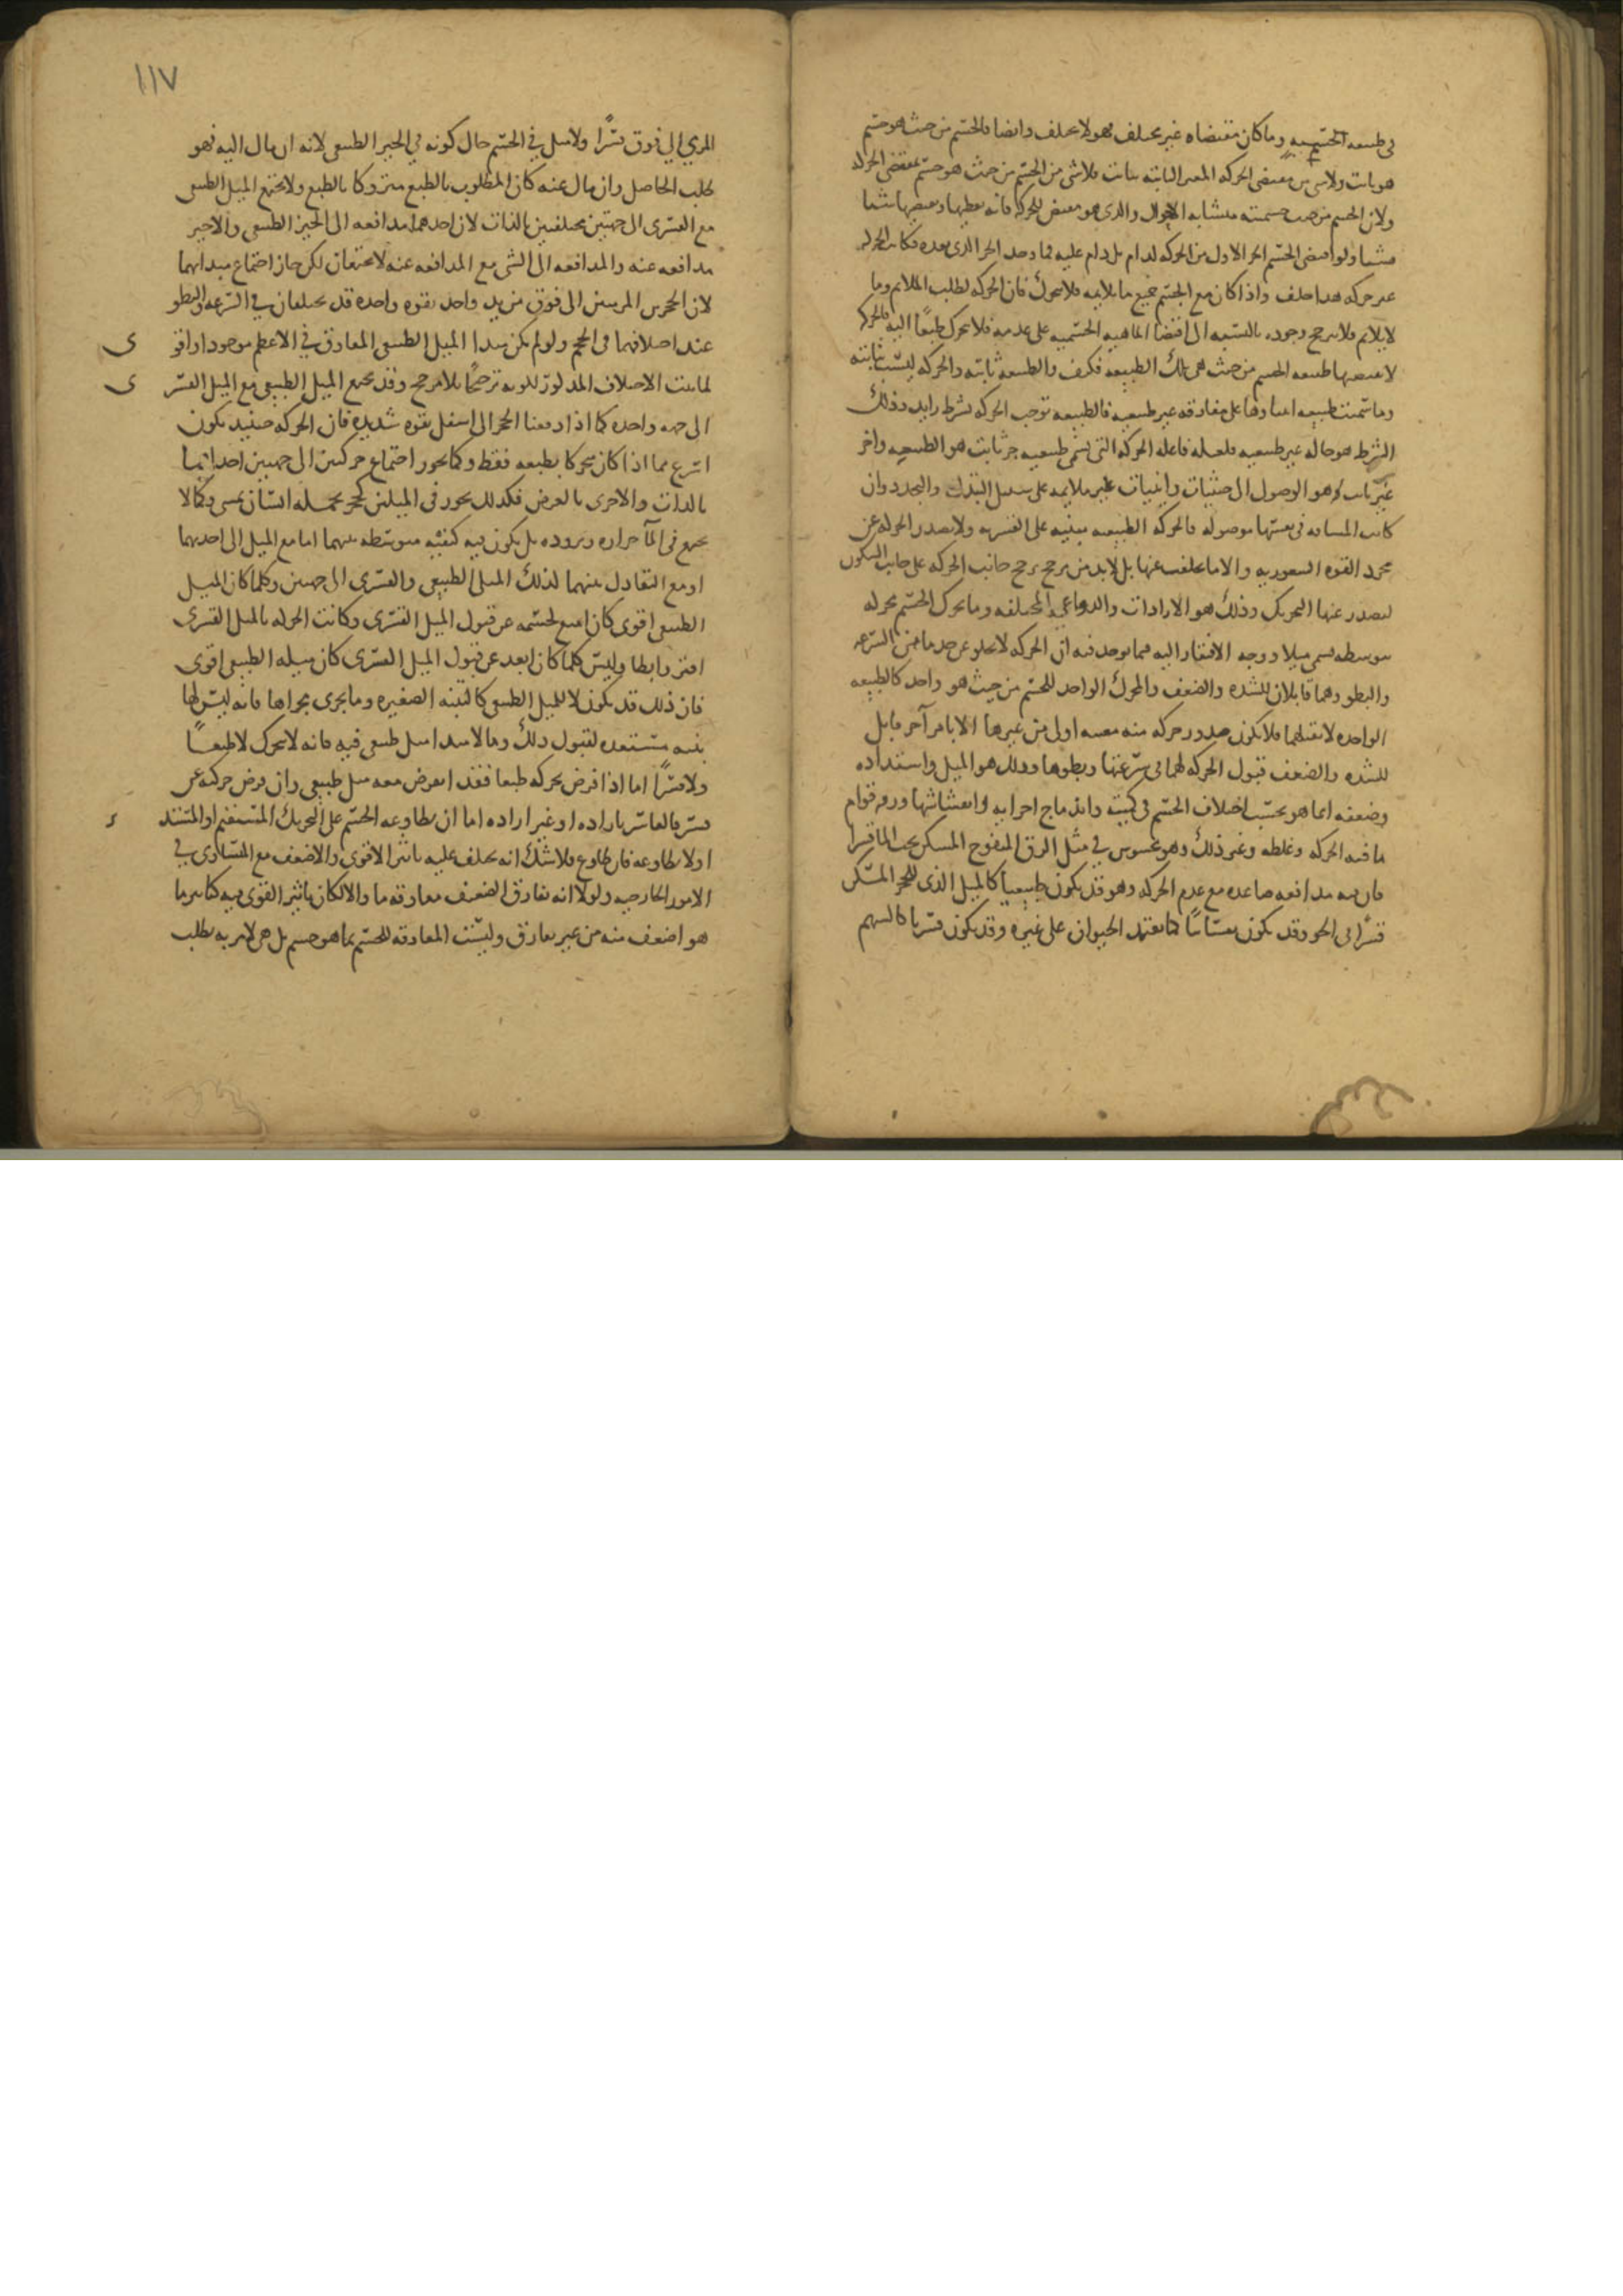 في طبيعة الجسمية وما كان مقتضاه غير مختلف فهو لا يختلف وايضا فالجسم من حيث هو جسم
هو ثابت ولا شي من مقتضى الحركة الغير الثابتة بثابت فلا شي من الجسم من حيث هو جسم بمقتضى الحركة
ولان الجسم من حيث جسميته متشابه الاحوال والذي هو مقتض للحركة فانه يعطيها ويقتضيها شيا
فشيا ولو اقتضى الجسم الجز الاول من الحركة لدام بل دام عليه فما وجد الجز الذي بعده فكانت الحركة
غير حركة هذا خلف واذا كان مع الجسم جميع ما يلايمه فلا يتحرك فان الحركة لطلب الملايم وما
لا يلايم فلا يترجح وجوده بالنسبة الى اقتضا الماهية الجسمية على عدمه فلا يتحرك طبعًا اليه فالحركة
لا يقتضيها طبيعة الجسم من حيث هي تلك الطبيعة فكيف والطبيعة ثابتة والحركة ليست ثابتة
وما سميت طبيعية على مفارقة غير طبيعية فالطبيعة توجب الحركة بشرط زايد وذلك
الشرط هو حالة غير طبيعية فلعلة فاعلة الحركة التي تسمى طبيعية جز ثابت هو الطبيعة واخر
غير ثابت هو الوصول الى حيثيات واينيات غير ملايمة على سبيل التبدل والتجدد وان
كانت المسافة في نفسها موصولة فالحركة الطبيعية مبنية على القسرية ولا يصدر الحركة عن
مجرد القوة الشعورية والا ما تخلفت عنها بل لا بد من مرجح يرجح جانب الحركة على جانب السكون
ليصدر عنها التحريك وذلك هو الارادات والدواعي المختلفة وما يحرك الجسم بحركة
بتوسطه يسمى ميلا ووجه الافتقار اليه فيما يوجد فيه ان الحركة لا تخلو عن حد ما من السرعة
والبطو وهما قابلان للشدة والضعف والمحرك الواحد للجسم من حيث هو واحد كالطبيعة
الواحدة لا تقبلهما فلا يكون صدور حركة منه معينة اولى من غيرها الا بامر آخر قابل
للشدة والضعف قبول الحركة لهما في سرعتها وبطوها وذلك هو الميل واشتداده
وضعفه انما هو بحسب اختلاف الجسم في كميته واندماج اجزايه وانتفاشها ورقة قوام
ما فيه الحركة وغلظه وغير ذلك وهو محسوس في مثل الزق المنفوخ المسكن تحت الما قسرا
فان فيه مدافعة صاعدة مع عدم الحركة وهو قد يكون طبيعيا كالميل الذي للحجر المسكن
قسرًا في الجو وقد يكون نفسانيًا كما يعتمد الحيوان على غيره وقد يكون قسريا كالسهم
١١٧
المرمي الى فوق قسرًا ولا ميل في الجسم حال كونه في الحيز الطبيعي لانه ان مال اليه فهو
طلب الحاصل وان مال عنه كان المطلوب بالطبع متروكا بالطبع ولا يجتمع الميل الطبيعي
مع القسري الى جهتين مختلفتين بالذات لان احدهما مدافعة الى الحيز الطبيعي والاخر
مدافعة عنه والمدافعة الى الشي مع المدافعة عنه لا يجتمعان لكن جاز اجتماع مبدايهما
لان الحجرين المرميين الى فوق من يد واحد بقوة واحدة قد يختلفان في السرعة والبطو
عند اختلافهما في الحجم ولو لم يكن مبدا الميل الطبيعي المعاوق في الاعظم موجودا واقوى
لما ثبت الاختلاف المذكور لكونه ترجيحًا بلا مرجح وقد يجتمع الميل الطبيعي مع الميل القسرى
الى جهة واحدة كما اذا دفعنا الحجر الى اسفل بقوة شديدة فان الحركة حينيذ يكون
اسرع مما اذا كان يتحرك بطبعه فقط وكما يجوز اجتماع حركتين الى جهتين احداهما
بالذات والاخرى بالعرض فكذلك يجوز في الميلين كحجر يحمله انسان يمشي وكما لا
يجتمع في الما حرارة وبرودة بل يكون فيه كيفية متوسطة بينهما اما مع الميل الى احديهما
او مع التعادل بينهما لذلك الميل الطبيعي والقسري الى جهتين وكلما كان الميل
الطبيعي اقوى كان امنع لجسمه عن قبول الميل القسري وكانت الحركة بالميل القسري
افتر وابطا وليس كلما كان ابعد عن قبول الميل القسري كان ميله الطبيعي اقوى
فان ذلك قد يكون لا للميل الطبيعي كالتبنة الصغيرة وما يجري مجراها فانه ليس لها
بنية مستعدة لقبول ذلك وما لا مبدا ميل طبيعي فيه فانه لا يتحرك لا طبعًا
ولا قسرًا اما اذا فرض تحركه طبعا فقد فرض معه ميل طبيعي وان فرض حركته عن
قسر فالقاسر بارادة او غير ارادة اما ان يطاوعه الجسم على التحريك المستقيم او المستدير
او لا يطاوعه فان طاوع فلا شك انه يختلف عليه تاثير الاقوى والاضعف مع التساوي في
الامور الخارجية ولولا انه يفارق الضعيف معاوقة ما والا لكان تاثير القوي فيه كتاثير ما
هو اضعف منه من غير فارق وليست المعاوقة للجسم بما هو جسم بل هي لامر به يطلب